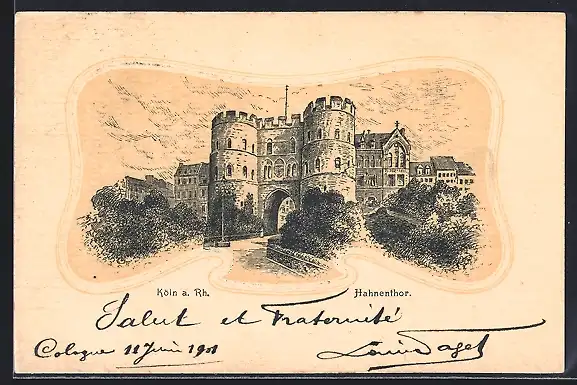 Köln a. Rh. Hahnenthor.
Salut et Fraternité
Cologne 11 Juin 1901
Louis